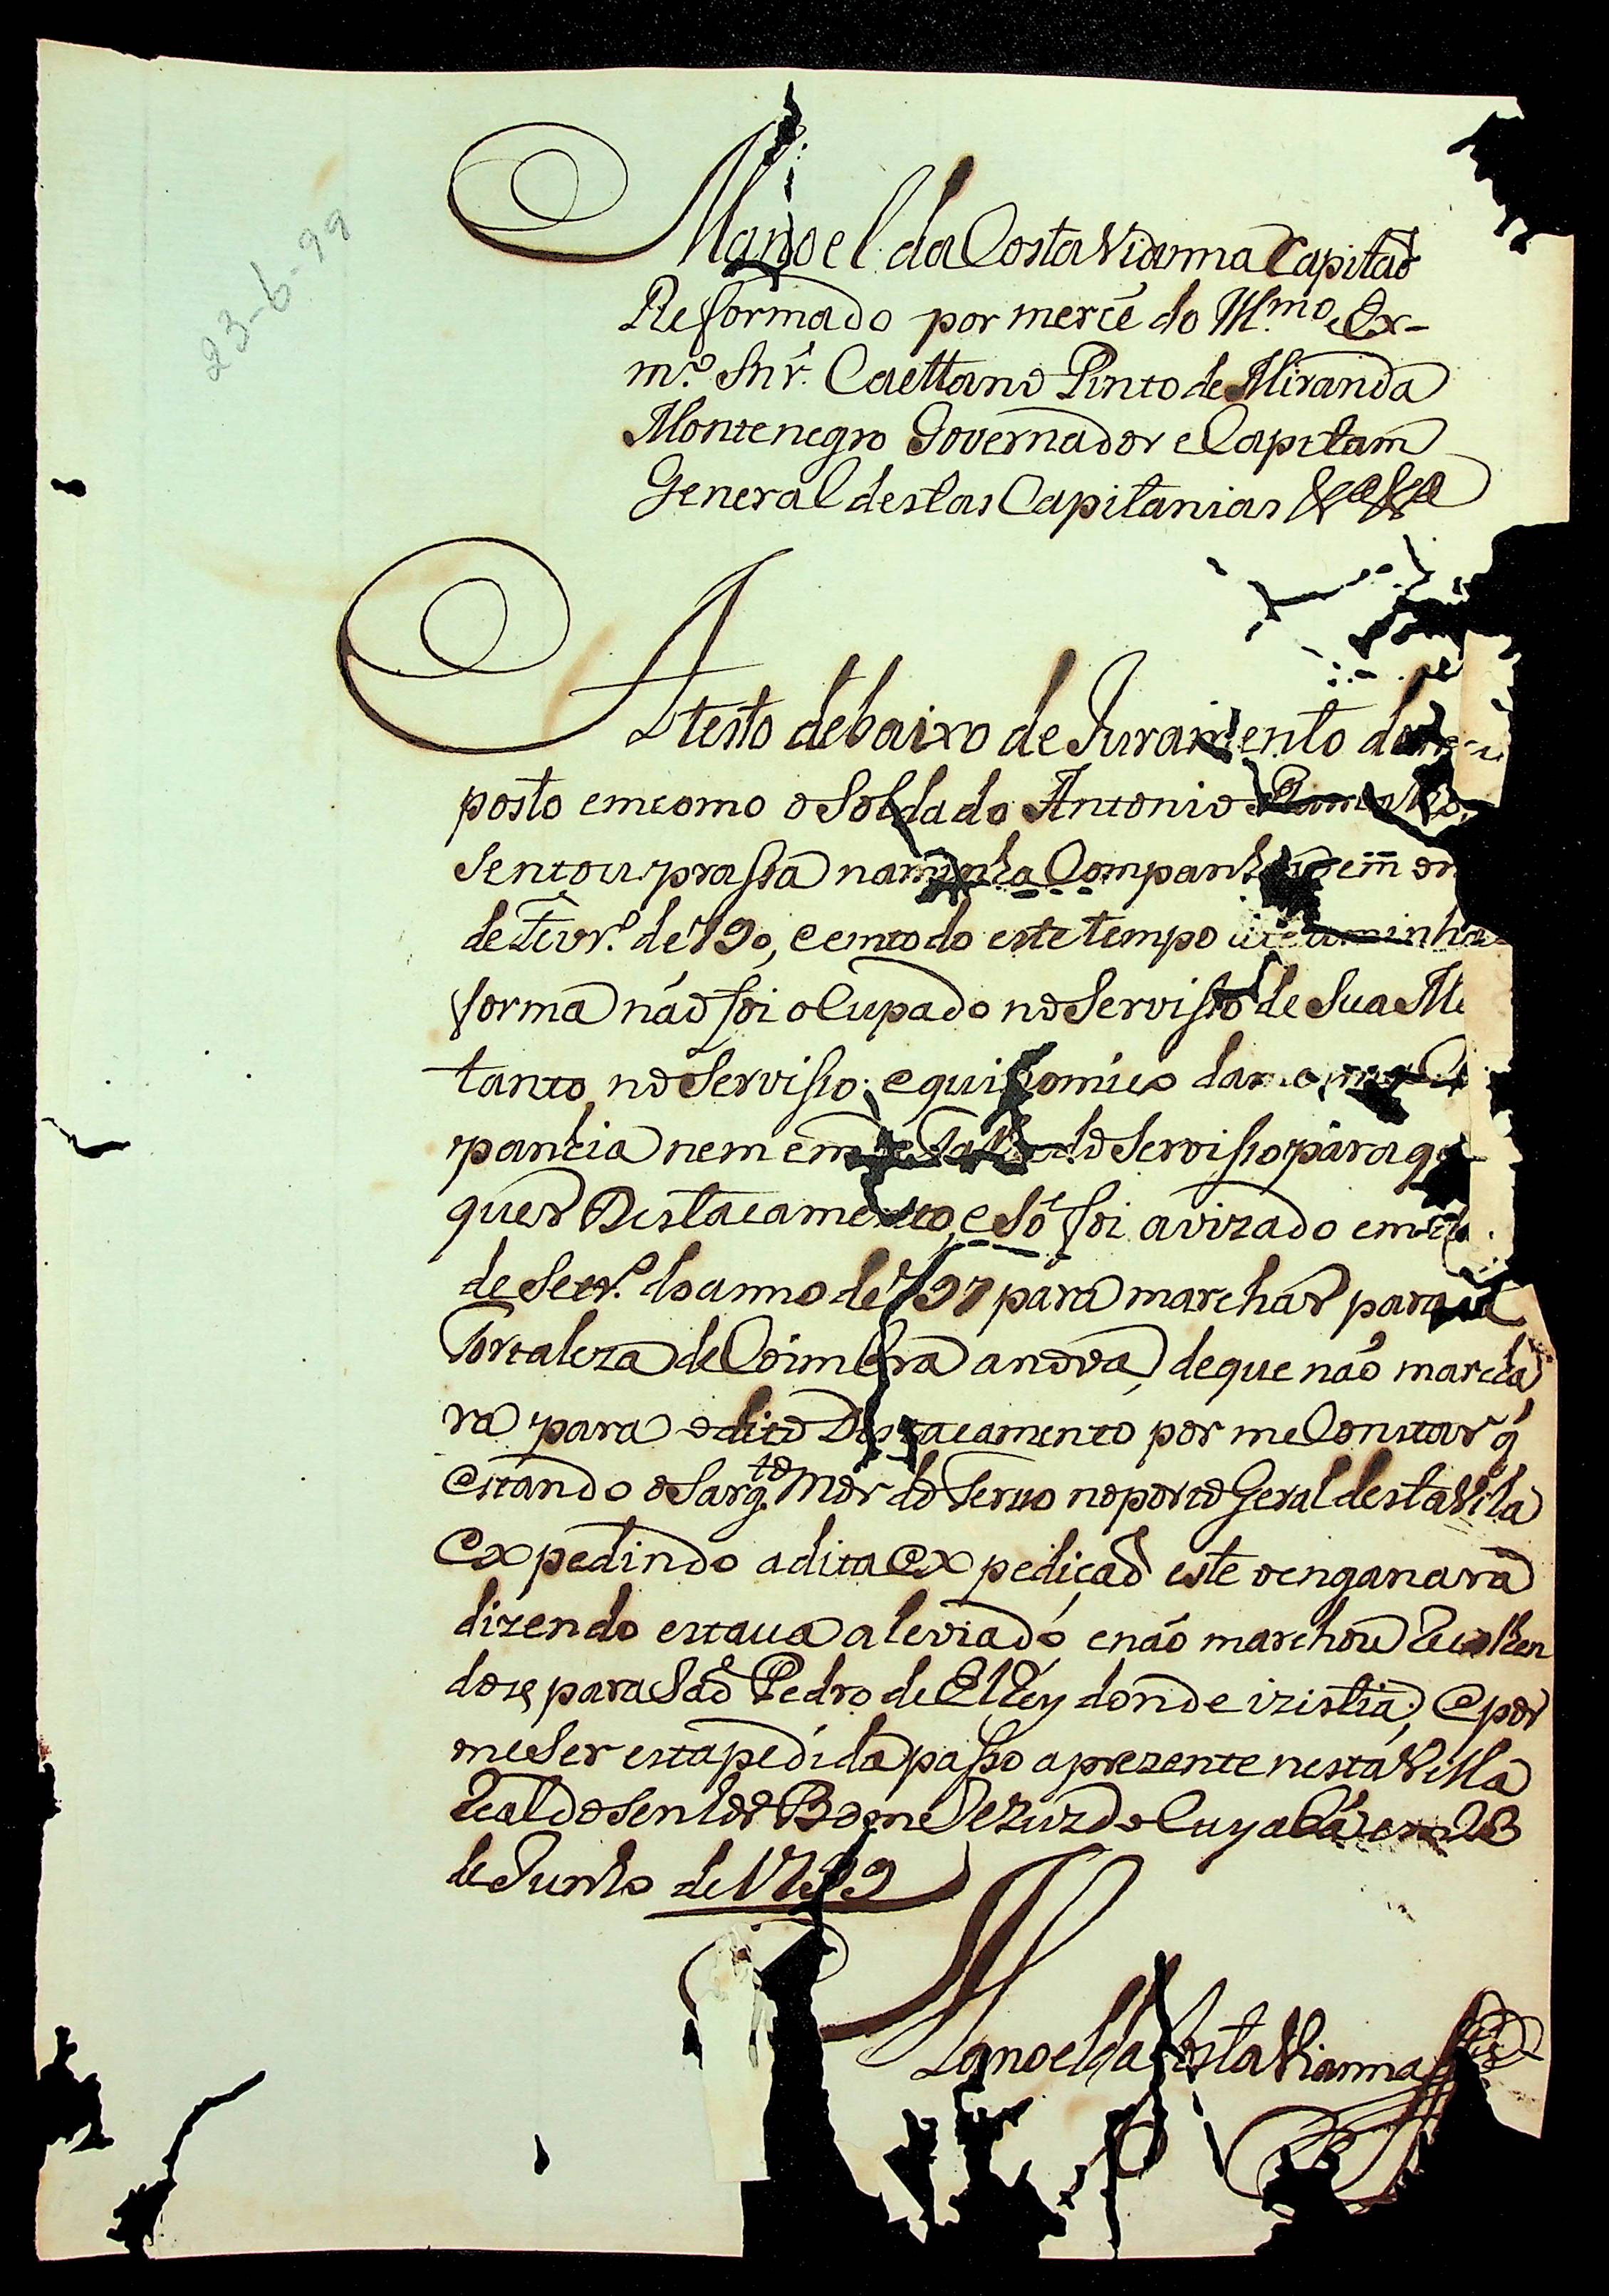 23-6-99
Manoel da Costa Vianna Capitaõ
Reformado por merce do Ill.mo e Ex-
m.o Snr. Caettano Pinto de Miranda
Montenegro Governador e Capitam
General destas Capitanias &a &a
Atesto debaixo de Juramento do
posto em como o Soldado Antonio
Sentou prassa na minha Companhia em
de Fevr.o de 790, e em todo este tempo minha
forma não foi ocupado no Servisso de Sua
tanto no Servisso, equi
panhia nem em do Servisso para
quer Destacamento, e Só foi avizado em
de Setr.o do anno de 797 para marchar para a
Fortaleza de Coimbra a nova, de que não marcha
ra para o dito Destacamento por me Constar q̃
estando o Sarg.to Mor do Terno no porto Geral desta Vila
Expedindo a dita expediçaõ este o enganara
dizendo estava aleviado, e não marchou Recolhen
dose para Saõ Pedro de ElRey donde izistia; e por
me Ser esta pedida passo a prezente nesta Villa
Real do Senhor Bom Jezuz do Cuyabá em 23
de Junho de 1799
Manoel da Costa Vianna